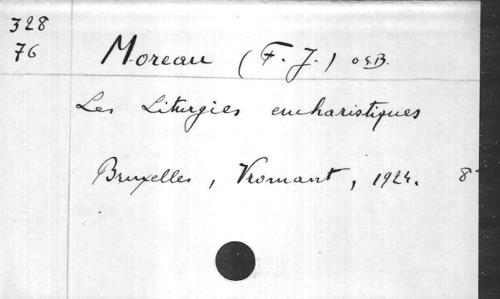 328
76
Moreau (F. J.) O.S.B.
Les Liturgies eucharistiques
Bruxelles, Vromant, 1924. 8°